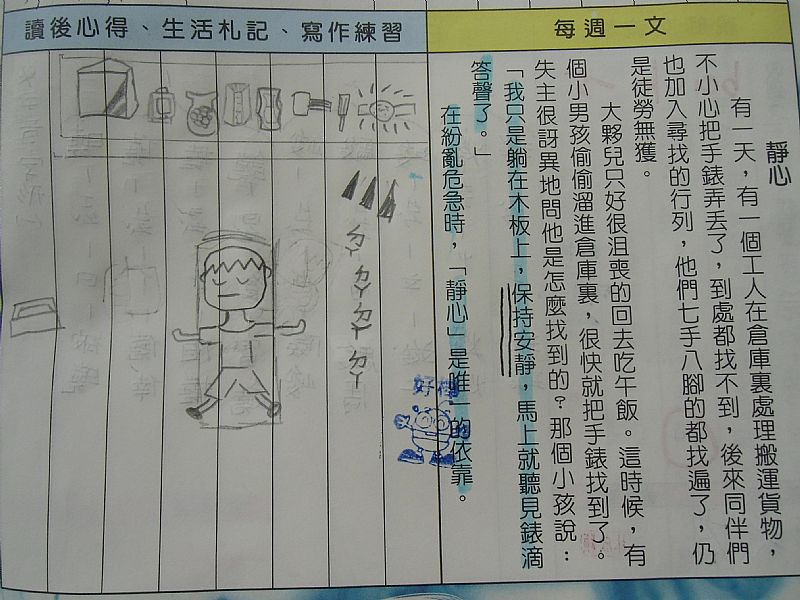 每週一文
靜心
有一天，有一個工人在倉庫裏處理搬運貨物，
不小心把手錶弄丟了，到處都找不到，後來同伴們
也加入尋找的行列，他們七手八腳的都找遍了，仍
是徒勞無獲。
大夥兒只好很沮喪的回去吃午飯。這時候，有
個小男孩偷偷溜進倉庫裏，很快就把手錶找到了。
失主很訝異地問他是怎麼找到的？那個小孩說：
「我只是躺在木板上，保持安靜，馬上就聽見錶滴
答聲了。」
在紛亂危急時，「靜心」是唯一的依靠。
讀後心得、生活札記、寫作練習
好棒
ㄉㄚ ㄉㄚ ㄉㄚ ㄉㄚ